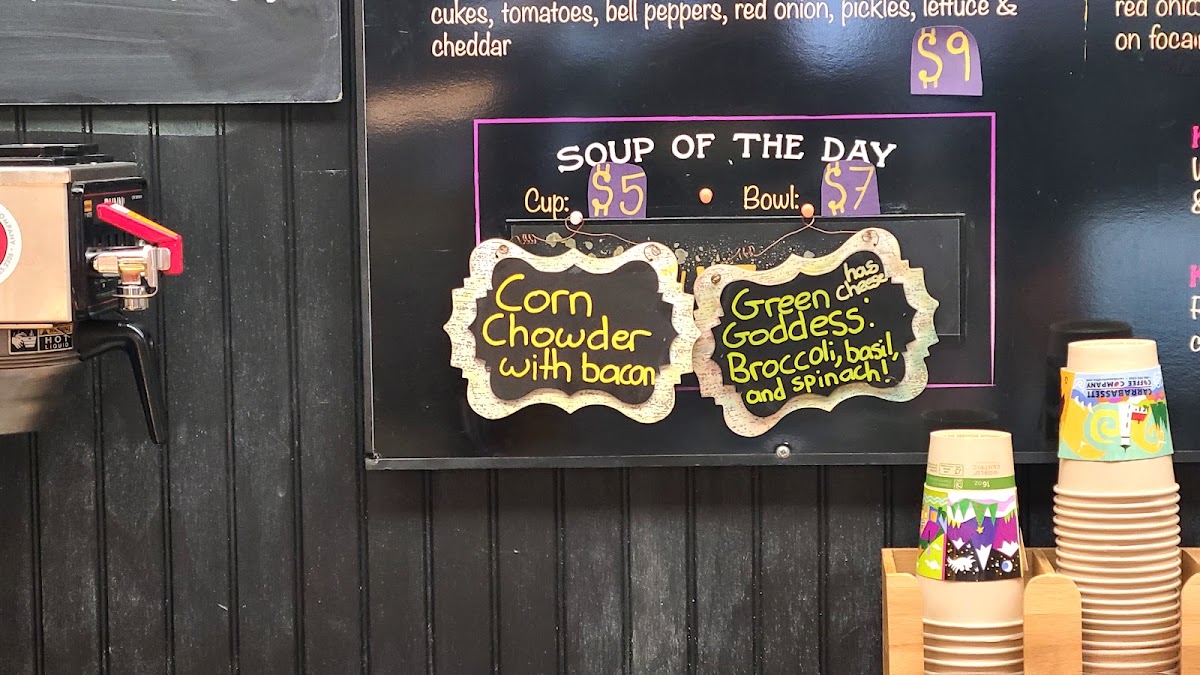 cukes, tomatoes, bell peppers, red onion, pickles, lettuce &
cheddar
$9
on focac
SOUP OF THE DAY
Cup: $5
Bowl: $7
Corn
Chowder
with bacon
Green has
Goddess. cheese
Broccoli, basil,
and spinach!
HOT
LIQUID
CARRABASSETT
COFFEE COMPANY
16oz